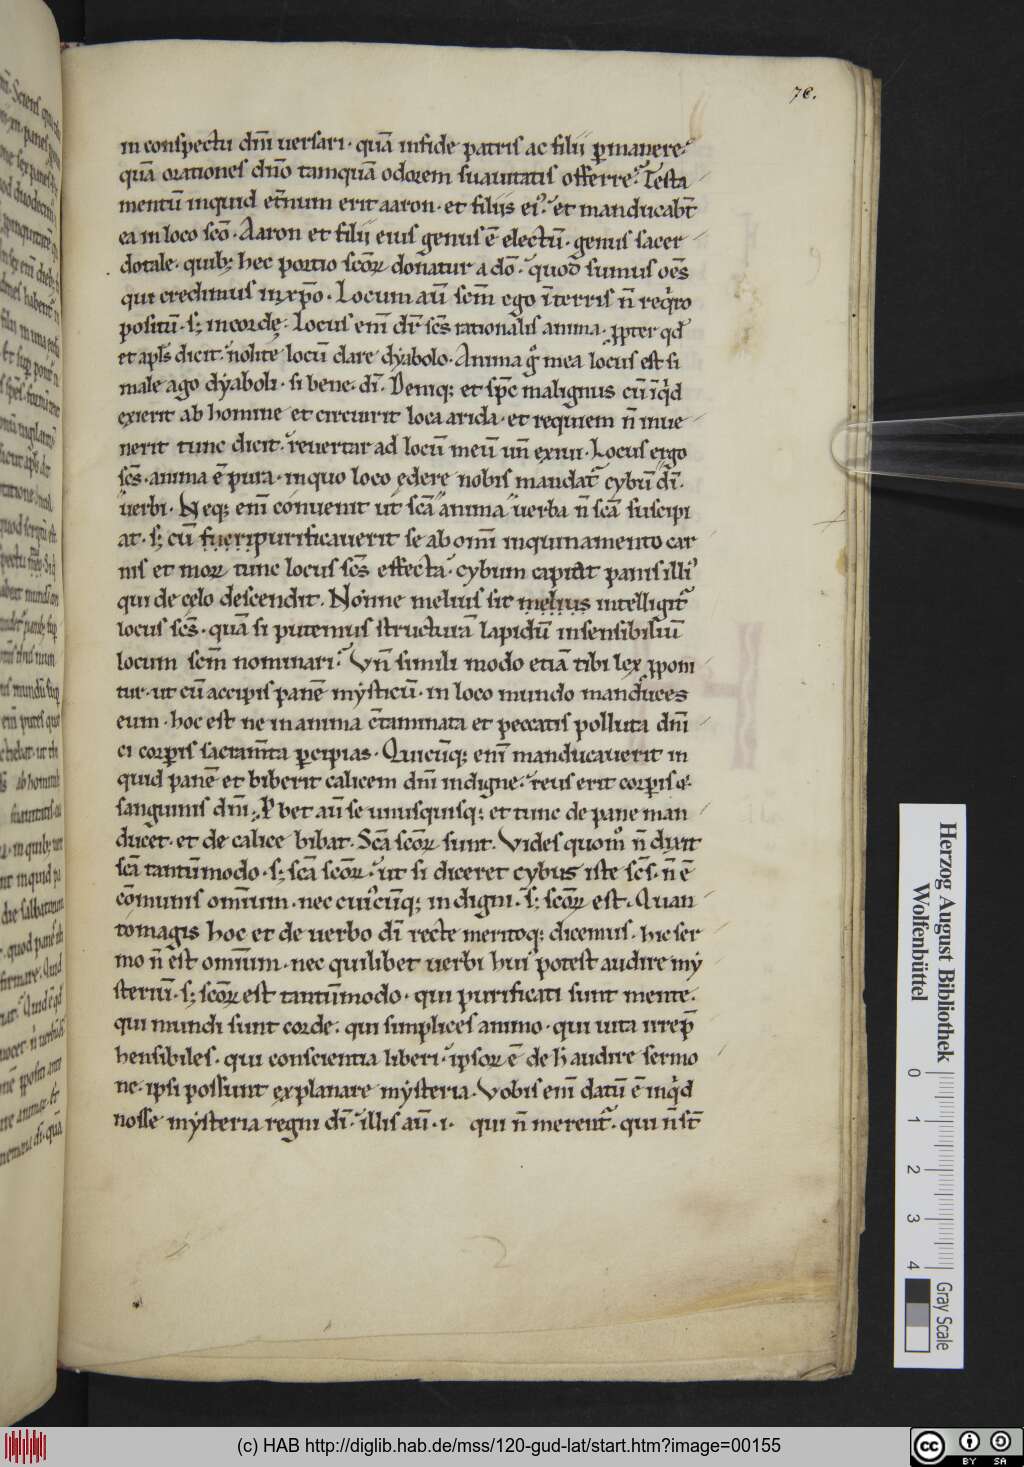 76.
in conspectu dn̄i uersari · quā in fide patris ac filii ꝑmanere ·
quā orationes dn̄o tamquā odorem suauitatis offerre. Testa
mentū inquid et̄num erit aaron · et filiis ei᾿. et manducab̄t
ea in loco sc̄o · Aaron et filii eius genus ē electū · genus sacer
dotale · quib; hec portio sc̄oꝝ donatur a dō · quod sumus oēs
qui credimus in xp̄o · Locum aū sc̄m ego ī terris n̄ reqͥro
positū · s; in corde · Locus eni̅ dr̄ sc̄s rationalis anima · ꝓpter qd̄
et apl̄s dicit · nolite locū dare dẏabolo · Anima gͦ mea locus est si
male ago dẏaboli · si bene · dī · Deniq; et sp̄c malignus cū īqͥd
exierit ab homine et circuirit loca arida · et requiem n̄ inue
nerit tunc dicit · reuertar ad locū meū un̄ exiui · Locus ergo
sc̄s · anima ē pura · in quo loco edere nobis mandat̄ cybū dī ·
uerbi · Neq; eni̅ conuenit ut sc̄a anima uerba n̄ sc̄a suscipi
at · s; cū fueri purificauerit se ab omī inquinamento car
nis et moꝝ tunc locus sc̄s effecta · cybum capiat panis illi᾿
qui de celo descendit · Nonne melius sit melius intelligit̄
locus sc̄s · quā si putemus structurā lapidū insensibiliū
locum sc̄m nominari · Vn̄ simili modo etiā tibi lex ꝓponi
tur · ut cū accipis panē mẏsticū · in loco mundo manduces
eum · hoc est ne in anima c̄taminata et peccatis polluta dn̄i
ci corꝑis sacram̄ta ꝑcipias · Quicūq; eni̅ manducauerit in
quid panē et biberit calicem dn̄i indigne · reus erit corꝑis &
sanguinis dn̄i · P bet aū se unusquisq; et tunc de pane man
ducet · et de calice bibat · Sc̄a sc̄oꝝ sunt · Vides quomͦ n̄ dixit
sc̄a tantūmodo · s; sc̄a sc̄oꝝ · ut si diceret cybus iste sc̄s · n̄ ē
cōmunis omnium · nec cuicūq; indigni · s; sc̄oꝝ est · Quan
to magis hoc et de uerbo dī recte meritoq; dicemus · hic ser
mo n̄ est omnium · nec quilibet uerbi hui᾿ potest audire mẏ
steriū · s; sc̄oꝝ est tantūmodo · qui purificati sunt mente ·
qui mundi sunt corde · qui simplices animo · qui uita irrep̄
hensibiles · qui conscientia liberi · ipsoꝝ ē de h̄ audire sermo
ne · ipsi possunt explanare mẏsteria · Vobis eni̅ datū ē inqͥd
nosse mẏsteria regni dī · illis aū · i · qui n̄ merent̄ · qui n̄ st̄
Herzog August Bibliothek
Wolfenbüttel
0 1 2 3 4
Gray Scale
(c) HAB http://diglib.hab.de/mss/120-gud-lat/start.htm?image=00155
cc BY SA